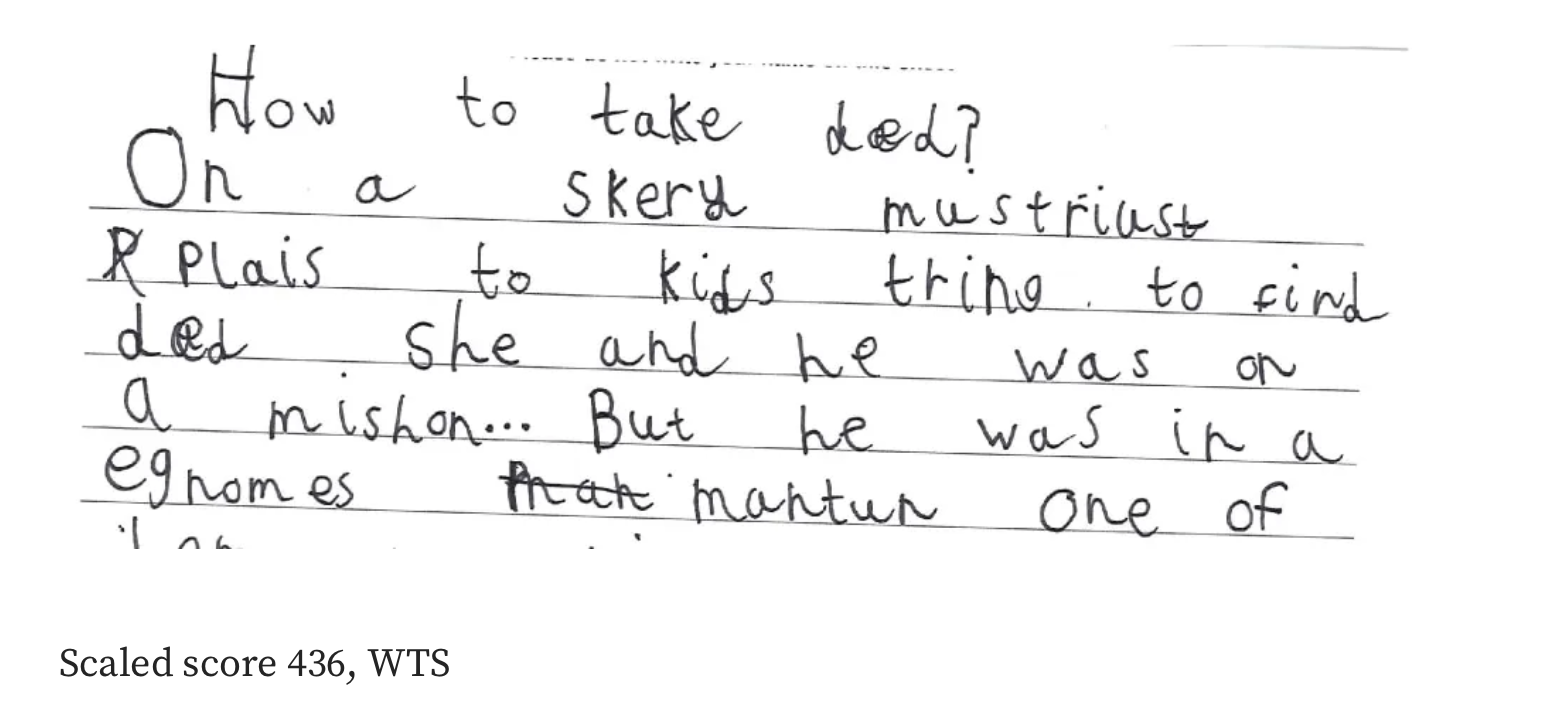 How to take ded?
On a skery mustriust
Plais to kids tring to find
ded she and he was on
a mishon... But he was in a
egnomes mantun one of
Scaled score 436, WTS